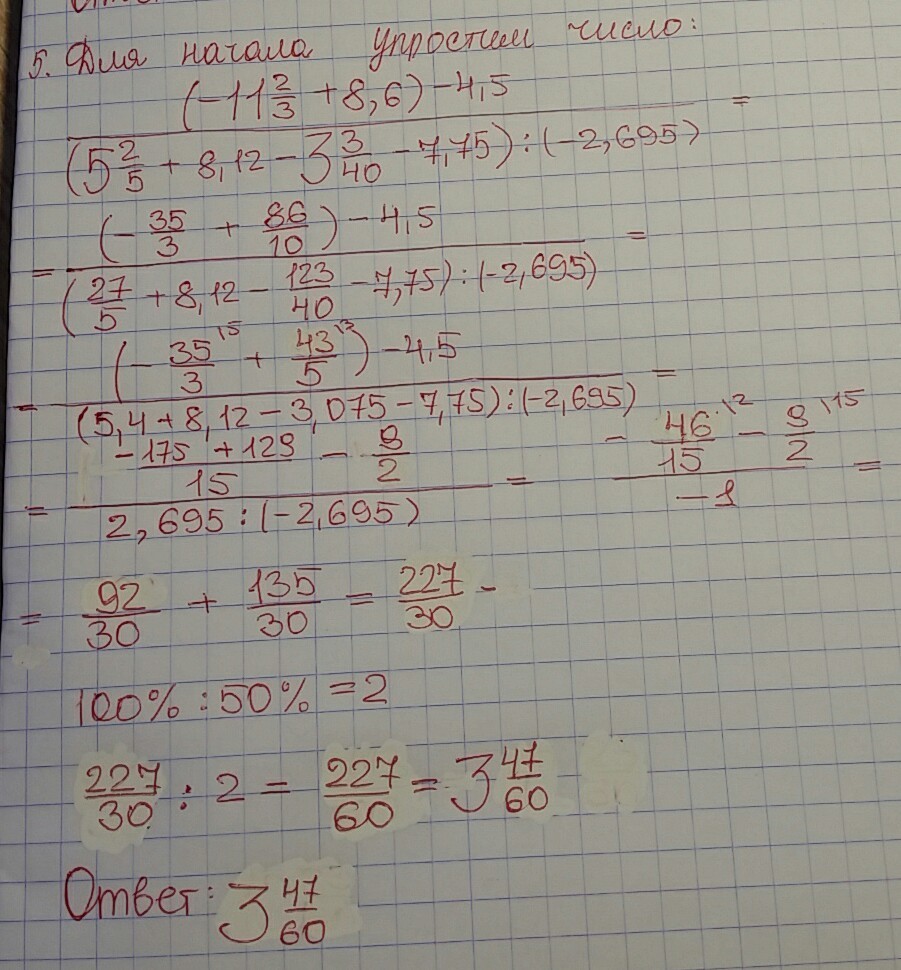 5. Для начала упростим число:
(-11 2/3 + 8,6) - 4,5
=
(5 2/5 + 8,12 - 3 3/40 - 7,75) : (-2,695)
(- 35/3 + 86/10) - 4,5
= =
(27/5 + 8,12 - 123/40 - 7,75) : (-2,695)
(- 35/3 \5 + 43/5 \3) - 4,5
= =
(5,4 + 8,12 - 3,075 - 7,75) : (-2,695)
(-175 + 129)/15 - 9/2 - 46/15 \2 - 9/2 \15
= = =
2,695 : (-2,695) -1
= 92/30 + 135/30 = 227/30 -
100% : 50% = 2
227/30 : 2 = 227/60 = 3 47/60
Ответ: 3 47/60